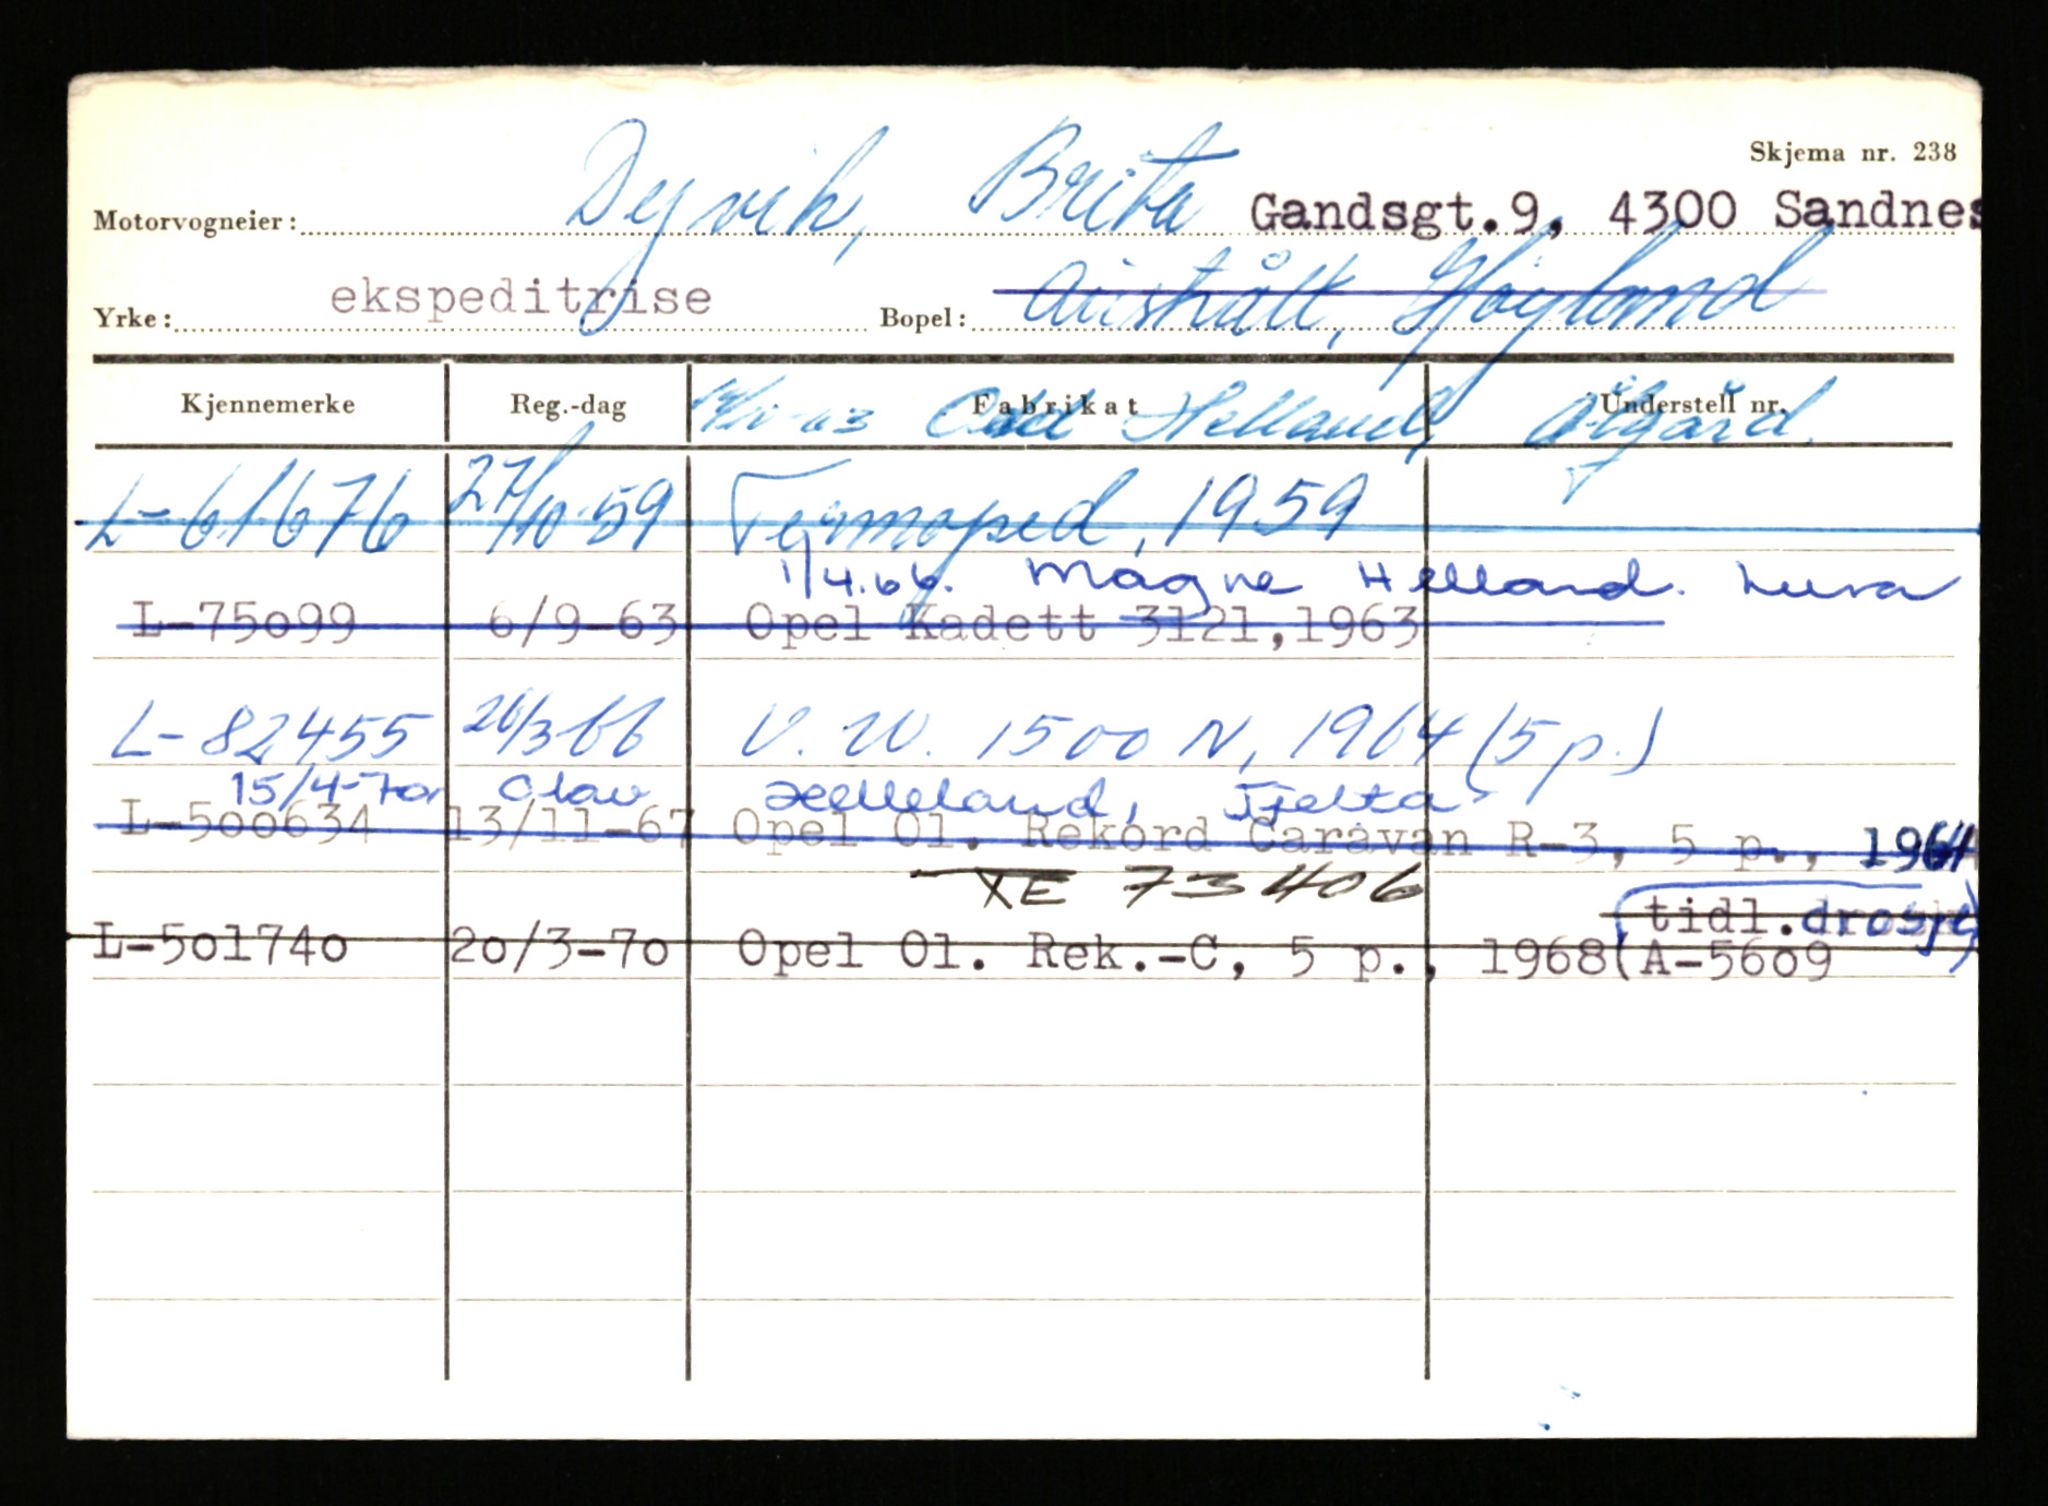 Skjema nr. 238
Motorvogneier: Dyvik, Brita Gandsgt.9, 4300 Sandnes
Yrke: ekspeditrise Bopel: Austrått, Høyland
Kjennemerke Reg.-dag Fabrikat Understell nr.
Odd Helland, Ålgård.
L-61676 27/10-59 Termoped, 1959
1/4.66. Magne Helland. Lura
L-75099 6/9-63 Opel Kadett 3121,1963
L-82455 26/3 66 V.W. 1500 N, 1964 (5 p.)
15/4-70 Olav Helleland, Tjelta
L-500634 13/11-67 Opel Ol. Rekord Caravan R-3, 5 p., 1964
XE 73406
(tidl.drosje)
L-501740 20/3-70 Opel Ol. Rek.-C, 5 p., 1968(A-5609)